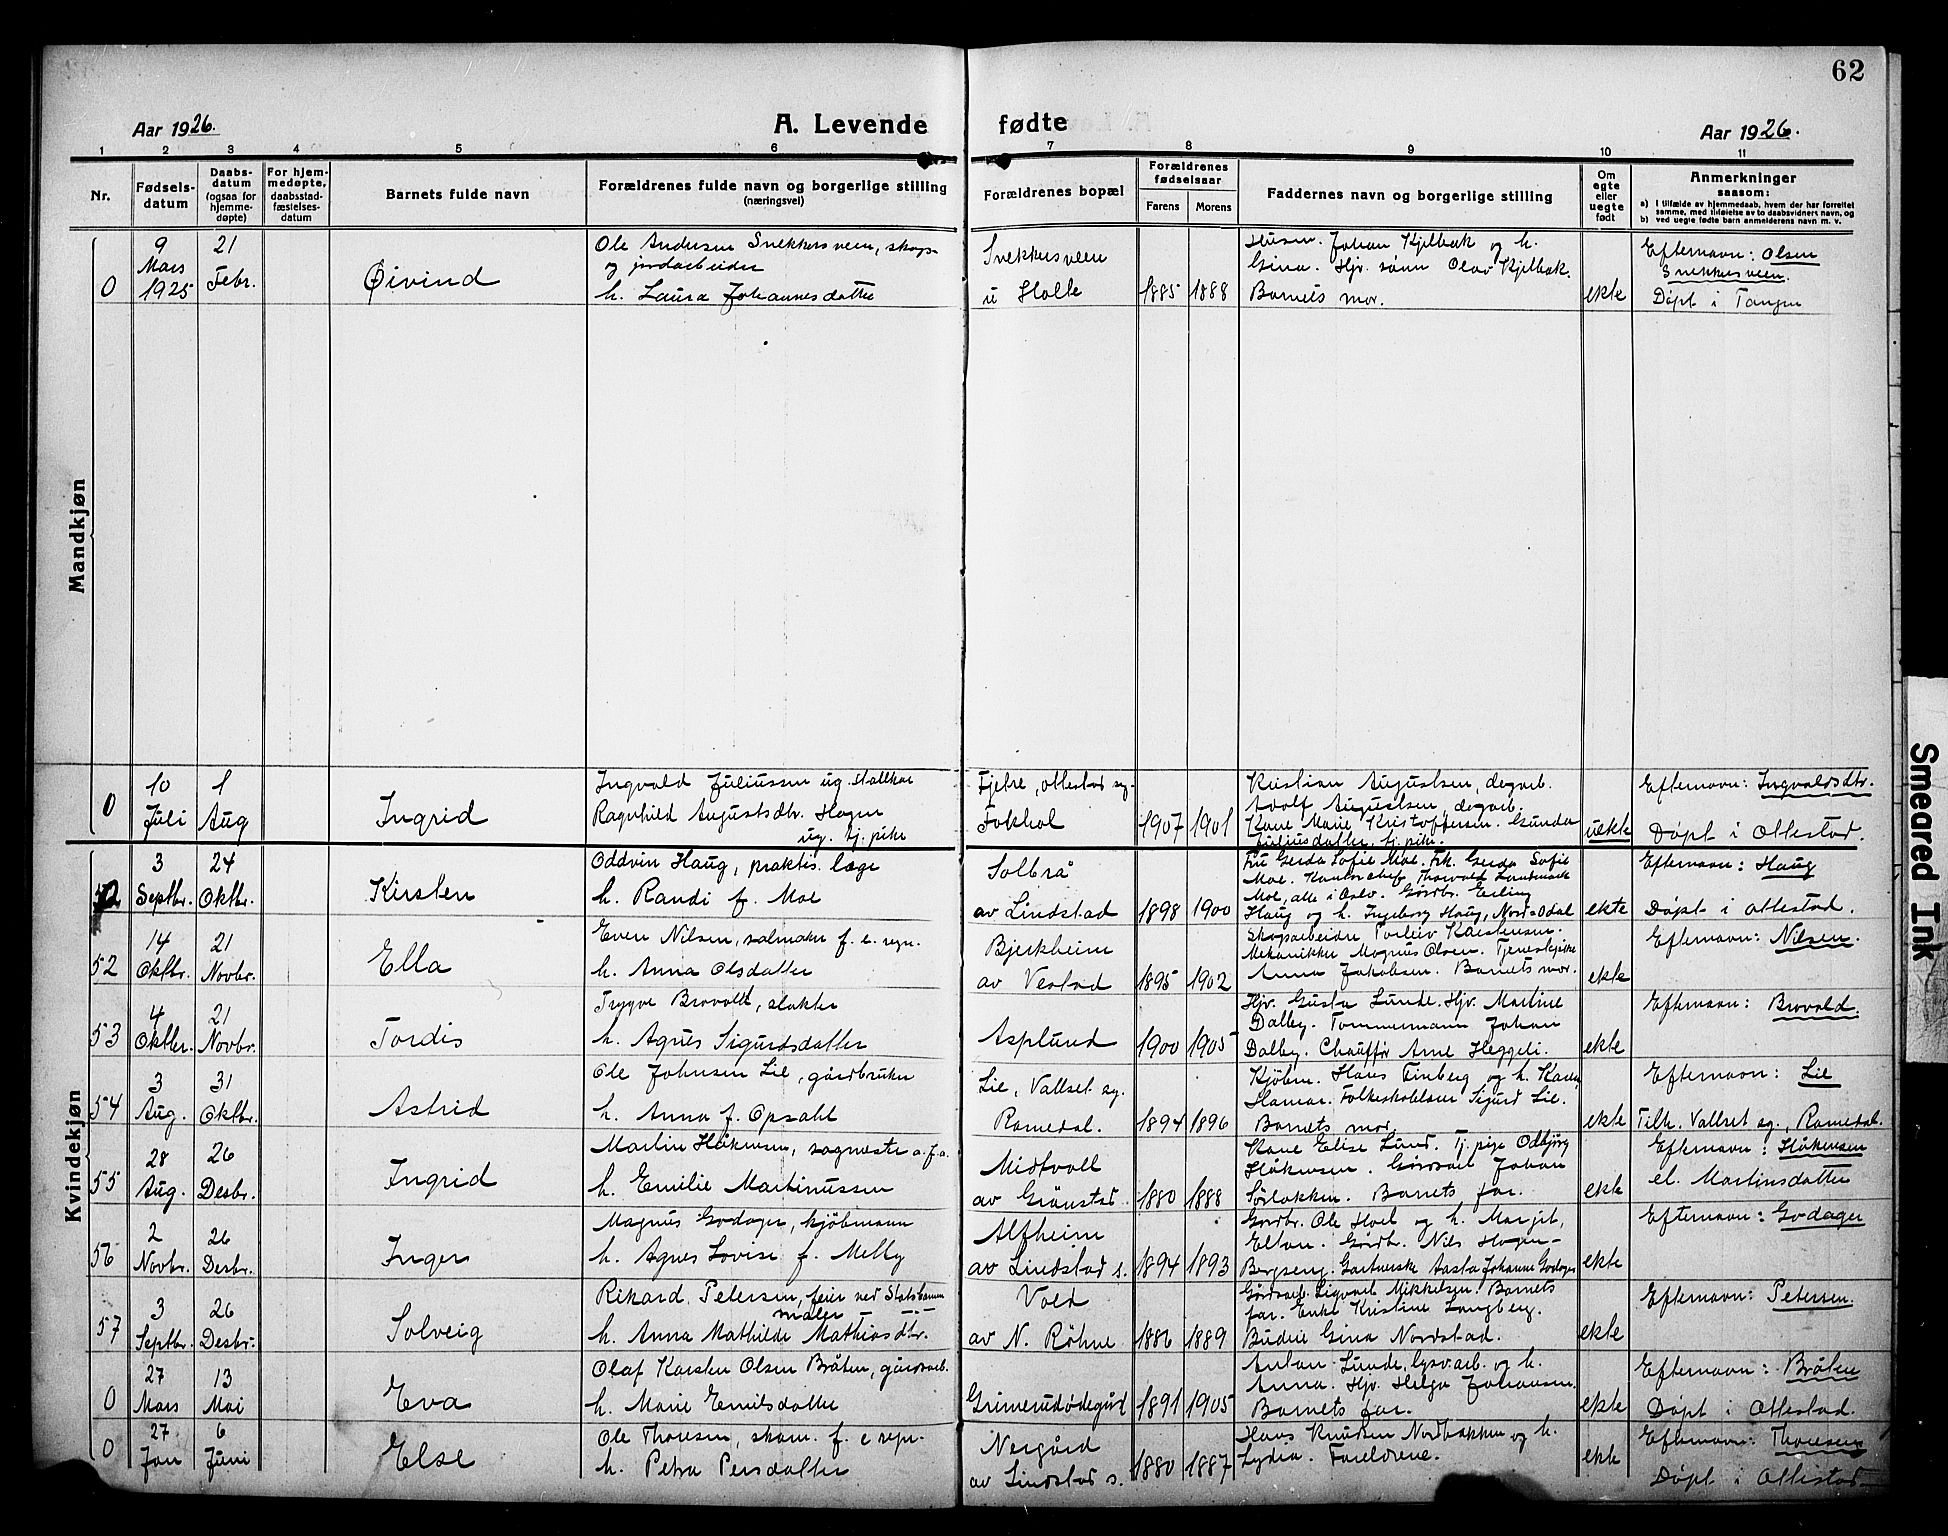 62
Aar 1926.
A. Levende
fødte
Aar 1926.
1 2 3 4 5 6 7 8 9 10 11
Nr.
Fødsels-
datum
Daabs-
datum
(ogsaa for
hjemme-
døpte)
For hjem-
medøpte,
daabsstad-
fæstelses-
datum
Barnets fulde navn
Forældrenes fulde navn og borgerlige stilling
(næringsvei)
Forældrenes bopæl
Forældrenes
fødselsaar
Farens Morens
Faddernes navn og borgerlige stilling
Om
egte
eller
uegte
født
Anmerkninger
saasom:
a) I tilfælde av hjemmedaab, hvem der har forrettet
samme, med tilføielse av to daabsvidners navn, og
b) ved uegte fødte barn anmelderens navn m. v.
Mandkjøn
0
9
Mars
1925
21
Febr.
Øivind
Ole Andersen Snekkersveen, skogs-
og jordarbeider
h. Laura Johannesdatter
Snekkersveen
u Holle
1885 1888
Husm. Johan Kjelbæk og h.
Gina. Hjv. sønn Olav Kjelbæk.
Barnets mor.
ekte
Efternavn: Olsen
Snekkersveen.
Døpt i Tangen
0
10
Juli
1
Aug
Ingrid
Ingvald Juliussen ug. stallkar
Ragnhild Augustsdtr. Hagen
ug. tj. pike
Fjetre, Ottestad sg.
Fokhol
1907 1901
Kristian Augustsen, degarb.
Adolf Augustsen, degarb.
Kone Marie Kristoffersen. Gunda
Juliusdatter, tj. pike.
uekte
Efternavn: Ingvaldsdtr.
Døpt i Ottestad.
Kvindekjøn
3
Septbr.
24
Oktbr.
Kirsten
Oddvin Haug, praktis. læge
h. Randi f. Moe
Solbrå
av Lindstad
1898 1900
Fru Gerda Sofie Moe. Frk. Gerda Sofie
Moe. Kontorchef Thorvald Landmark
Moe, alle i Oslo. Gårdbr. Erling
Haug og h. Ingeborg Haug, Nord-Odal
ekte
Efternavn: Haug
Døpt i Ottestad.
52
14
Oktbr.
21
Novbr.
Ella
Even Nilsen, salmaker f. e. regn.
h. Anna Olsdatter
Bjerkheim
av Vestad
1895 1902
Skogsarbeider Torleiv Karstensen.
Mekanikker Magnus Olsen. Tjenestpike
Anna Jakobsen. Barnets mor.
ekte
Efternavn: Nilsen.
53
4
Oktber.
21
Novbr.
Tordis
Trygve Brovold, slakter
h. Agnes Sigurdsdatter
Asplund
1900 1905
Hjv. Gusta Lunde. Hjv. Martine
Dalby. Tømmermann Johan
Dalby. Chauffør Arne Heggeli.
ekte
Efternavn: Brovold.
54
3
Aug.
31
Oktbr.
Astrid
Ole Johnsen Lie, gårdbruker
h. Anna f. Opsahl
Lie, Vallset sg.
Romedal.
1894 1896
Kjøbm. Hans Finberg og h. Kaia,
Hamar. Folkeskolelær. Sigurd Lie.
Barnets mor.
ekte
Efternavn: Lie
Tilh. Vallset sg., Romedal.
55
28
Aug.
26
Desbr.
Ingrid
Martin Håkensen, sagmester o.f.a.
h. Emilie Martinussen
Midtvoll
av Grønstad.
1880 1888
Kone Elise Lund. Tj. pige Odbjørg
Håkensen. Gårdsarb Johan
Sørlokken. Barnets far.
ekte
Efternavn: Håkensen
el. Martinsdatter
56
2
Novbr.
26
Desbr.
Inger
Magnus Godager, kjøbmann
h. Agnes Lovise f. Melby
Alfheim
av Lindstad s.
1894 1893
Gårdbr. Ole Hoel og h. Margit,
Elton. Gårdbr. Nils Hagen-
Bergseng. Gartnerske Aasta Johanne Godager
ekte
Efternavn: Godager
57
3
Septbr.
26
Desbr.
Solveig
Rikard Petersen, feier ved Statsbanen
maler
h. Anna Mathilde Mathiasdtr.
Vold
av N. Røhne
1886 1889
Gårdsarb. Sigvart Mikkelsen. Barnets
far. Enke Kristine Langberg.
Budeie Gina Nordstad.
ekte
Efternavn: Petersen.
0
27
Mars
13
Mai
Eva
Olaf Karsten Olsen Bråten, gårdsarb.
h. Marie Emilsdatter
Grimerudødegård
1891 1905
Anton Lunde, lysv.arb. og h.
Anna. Hjv. Helga Johansen.
Barnets far.
ekte
Efternavn: Bråten
Døpt i Ottestad.
0
27
Jan
6
Juni
Else
Ole Thoresen, skom. f. e regn.
h. Petra Persdatter
Nergård
av Lindstad s.
1880 1887
Hans Knudsen Nordbakken og h.
Lydia. Foreldrene.
ekte
Efternavn: Thoresen
Døpt i Ottestad
Smeared Ink